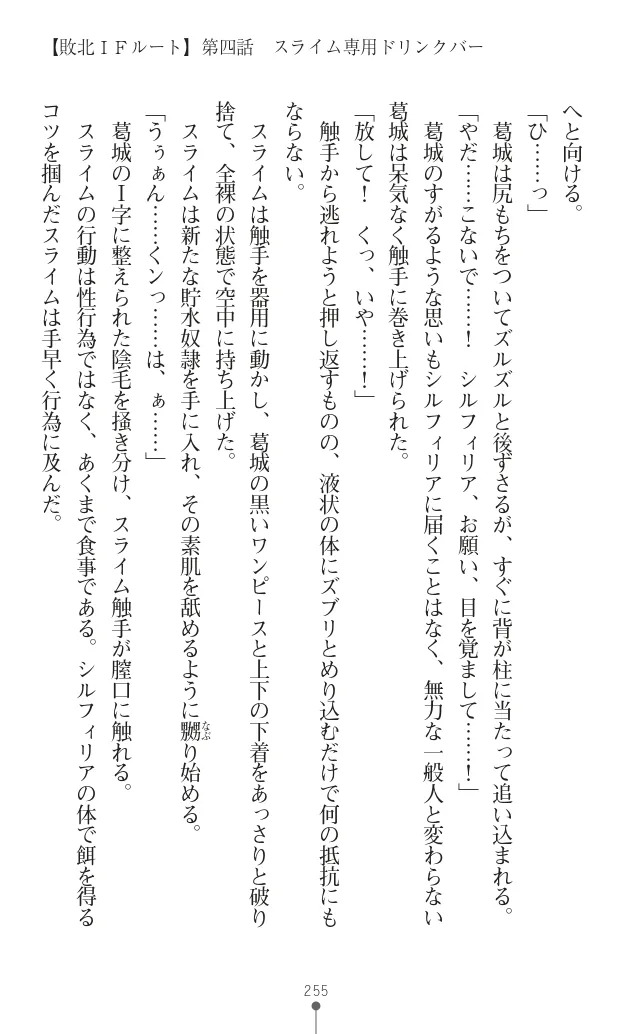 【敗北ＩＦルート】第四話　スライム専用ドリンクバー
へと向ける。
「ひ……っ」
　葛城は尻もちをついてズルズルと後ずさるが、すぐに背が柱に当たって追い込まれる。
「やだ……こないで……！　シルフィリア、お願い、目を覚まして……！」
　葛城のすがるような思いもシルフィリアに届くことはなく、無力な一般人と変わらない
葛城は呆気なく触手に巻き上げられた。
「放して！　くっ、いや……！」
　触手から逃れようと押し返すものの、液状の体にズブリとめり込むだけで何の抵抗にも
ならない。
　スライムは触手を器用に動かし、葛城の黒いワンピースと上下の下着をあっさりと破り
捨て、全裸の状態で空中に持ち上げた。
　スライムは新たな貯水奴隷を手に入れ、その素肌を舐めるように嬲り始める。
なぶ
「うぅぁん……くンっ……は、ぁ……」
　葛城のＩ字に整えられた陰毛を掻き分け、スライム触手が膣口に触れる。
　スライムの行動は性行為ではなく、あくまで食事である。シルフィリアの体で餌を得る
コツを掴んだスライムは手早く行為に及んだ。
255